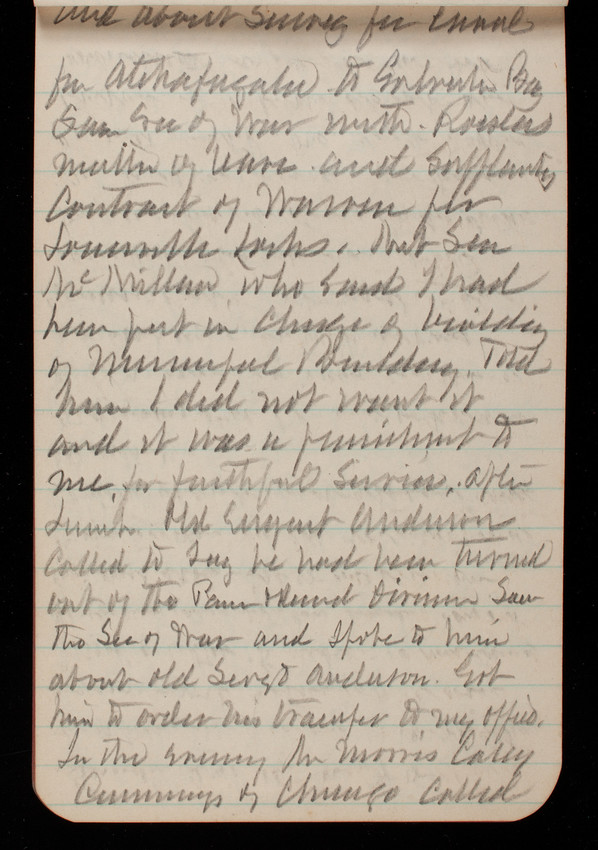 and about Survey for Canal
for Atchafugalie to Galveston Bay
Saw Sec of War with Roesslers
matter of leave and Supplantry
Contract of Warren for
Somerville Locks. Met Sen
McMillan who said I had
been put in Charge of building
of Municipal Building. Told
him I did not want it
and it was a punishment to
me, for faithful Service. After
Lunch Old Sergent Anderson
Called to Say he had been turned
out of the Division Saw
the Sec of War and Spoke to him
about old Sergt Anderson. Got
him to order his transfer to my office.
In the evening Mr Morris
Cummings of Chicago Called